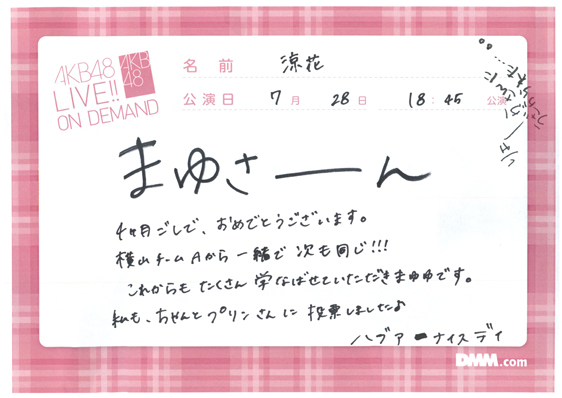 AKB48
LIVE!!
ON DEMAND
AKB
48
名前 涼花
公演日 7月 28日 18:45 公演
まゆさーーん
4ヶ月ごしで、おめでとうございます。
横山チームAから一緒で次も同じ!!!
これからもたくさん学なばせていただきまゆゆです。
私も、ちゃんとプリンさんに投票しました♪
ハブアーナイスデイ
DMM.com